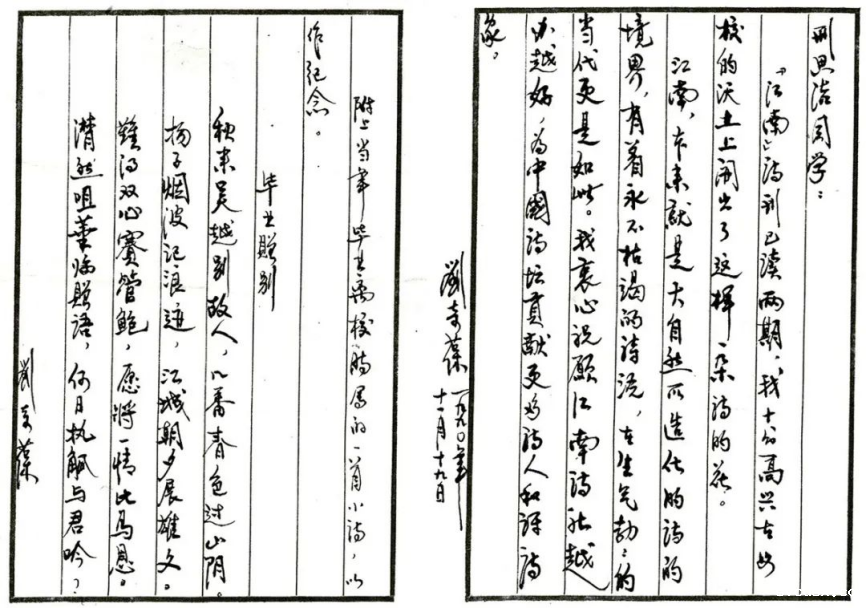 刑思洁同学：
《江南》诗刊已读两期，我十分高兴在母
校的沃土上开出了这样一朵诗的花。
江南，本来就是大自然所造化的诗的
境界，有着永不枯竭的诗流，在生气勃勃的
当代更是如此。我衷心祝愿江南诗社越
办越好，为中國诗坛贡献更多诗人和好诗
家。
劉奇葆 一九九〇年
十一月十九日
附上当年毕业离校时写的一首小诗，以
作纪念。
毕业贈别
秋来吴越别故人，几番春色过山阴。
扬子烟波记浪迹，江城朝夕展雄文。
难得双心赛管鲍，愿将一情比马恩。
潸然咀华临贈语，何日执觚与君吟？
劉奇葆